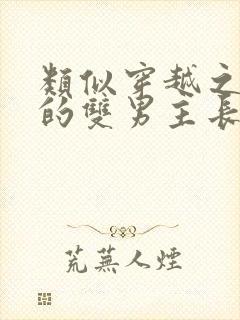 類似穿越之
的雙男主長
荒蕪人煙